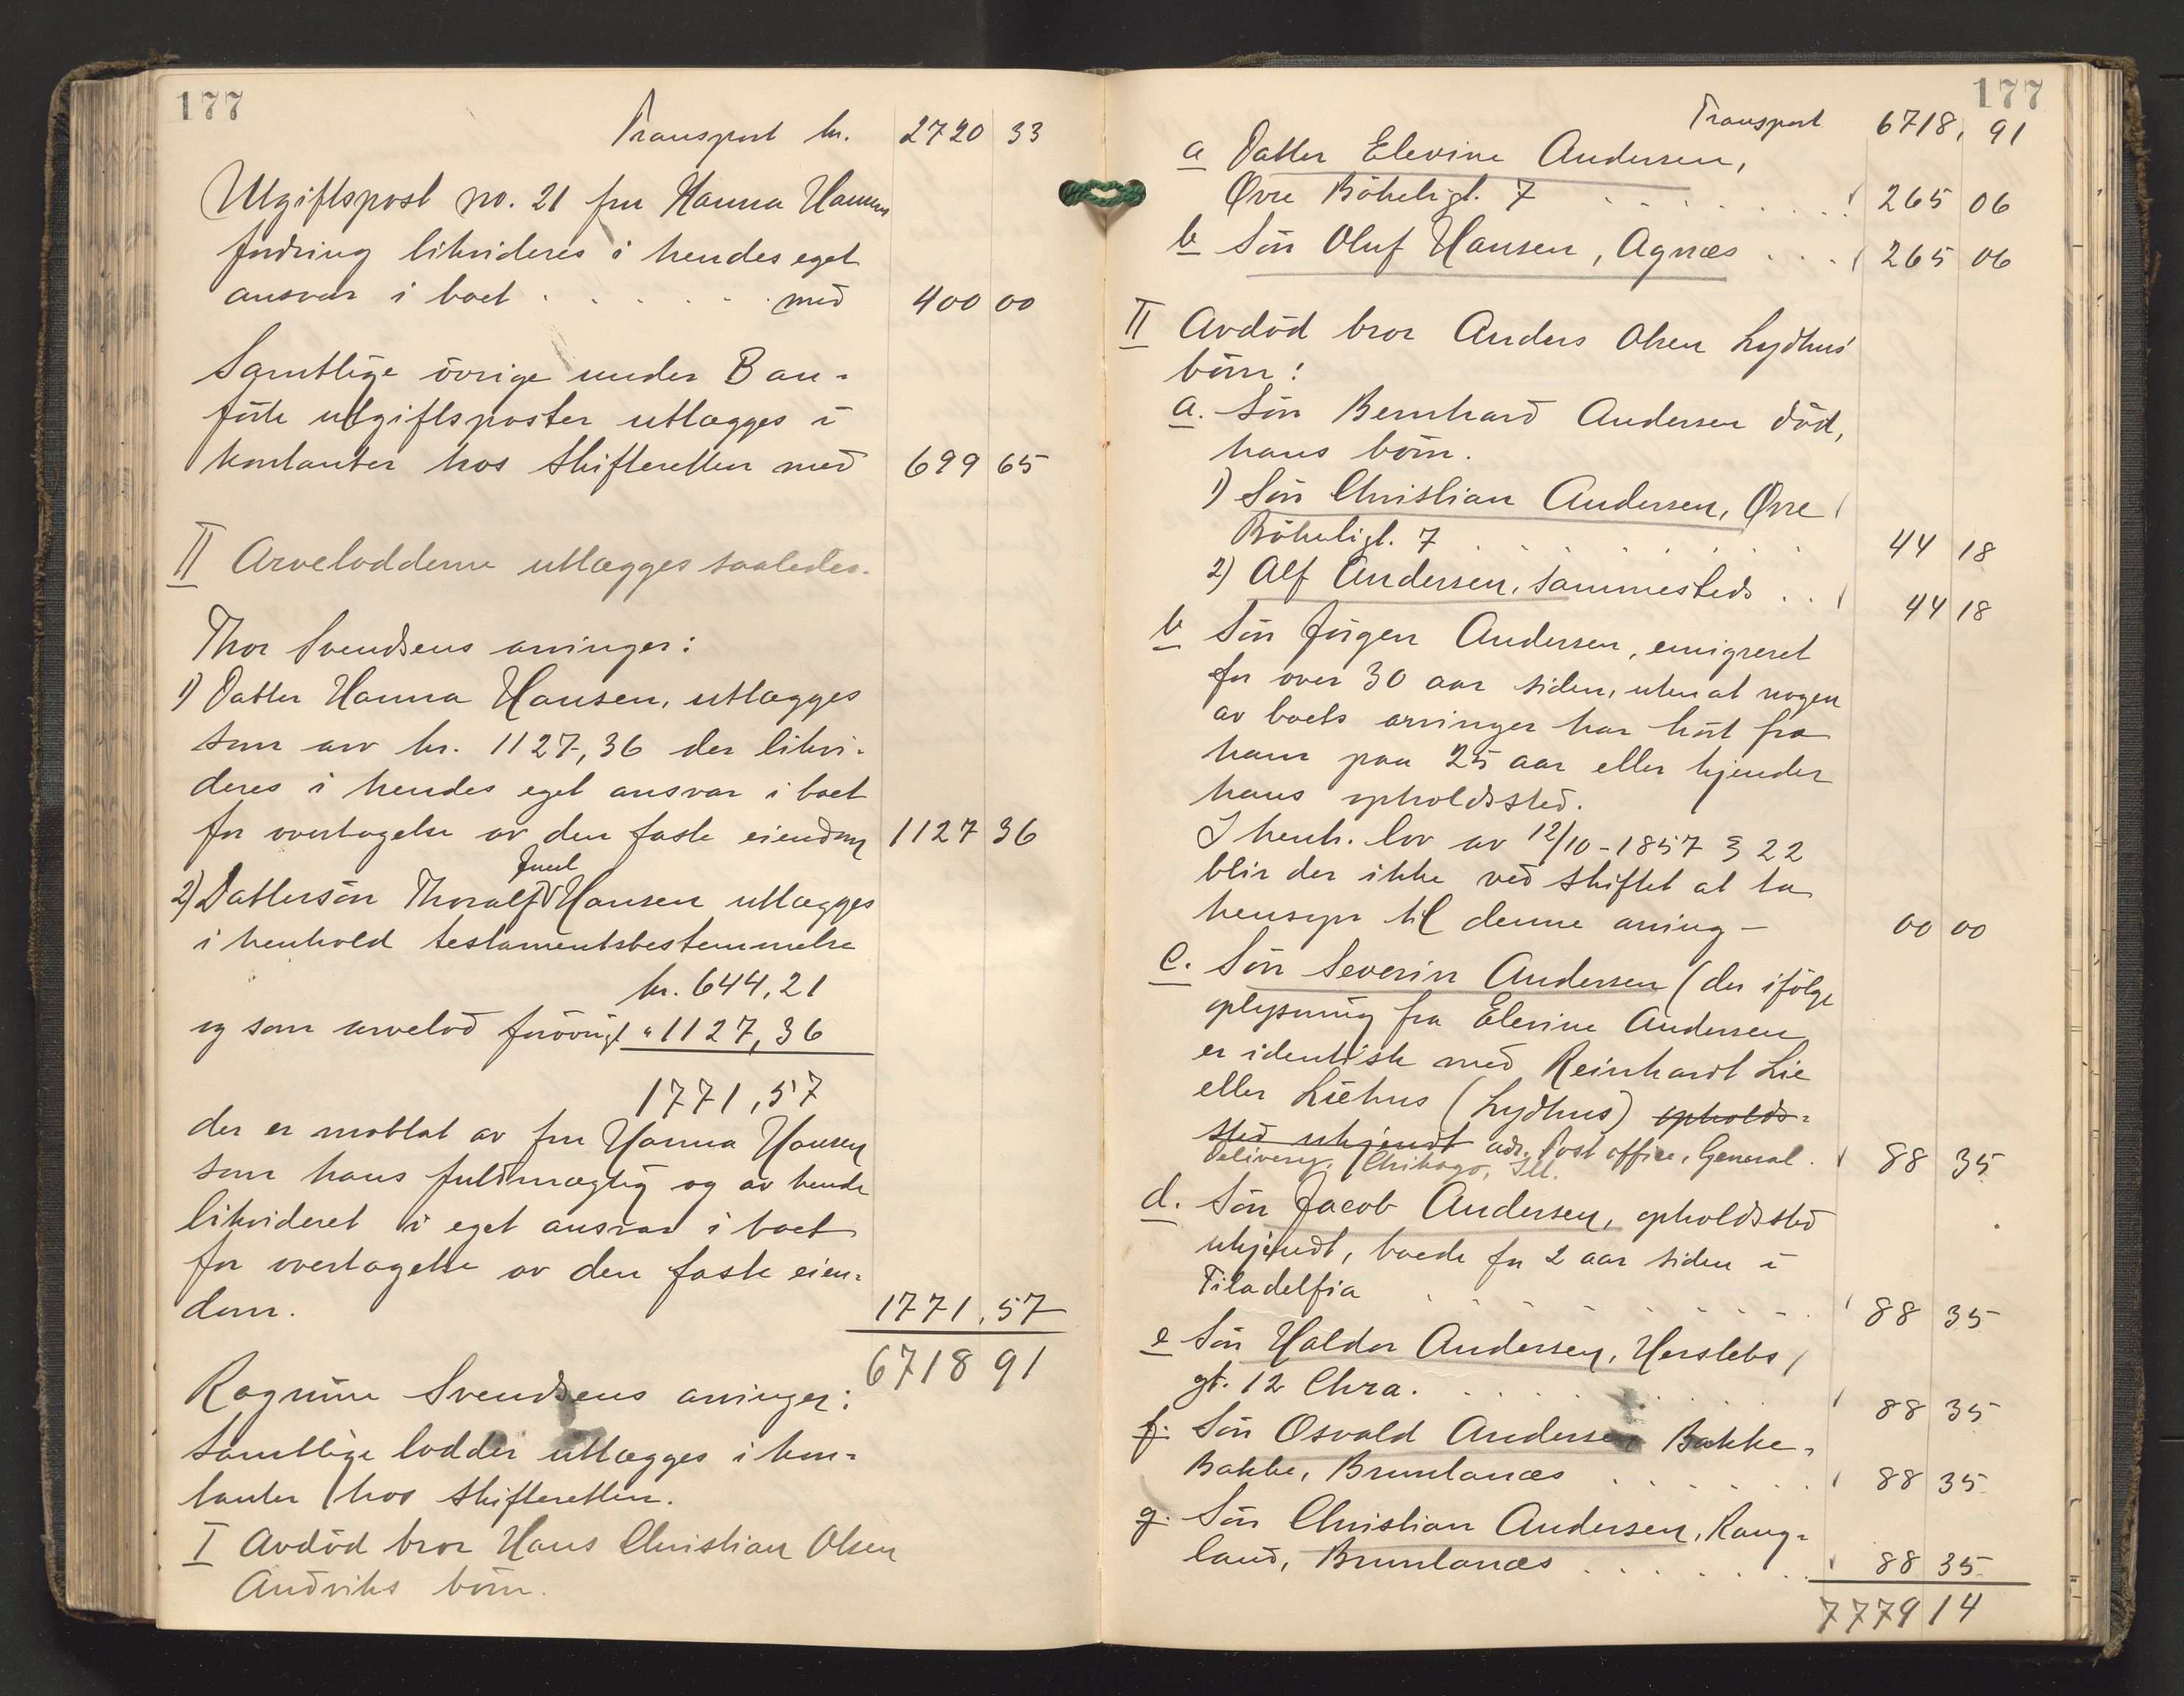 177
Transport kr. 2720 33
Utgiftspost no. 21 fru Hanna Hansens
fordring likvideres i hendes eget
ansvar i boet . . . . . . med 400 00
Samtlige övrige under B an-
förte utgiftsposter utlægges i
kontanter hos skifteretten med 699 65
II Arvelodderne utlægges saaledes.
Thor Svendsens arvinger:
1) Datter Hanna Hansen, utlægges
som arv kr. 1127,36 der likvi-
deres i hendes eget ansvar i boet
for overtagelse av den faste eiendom 1127 36
Juul
2) Dattersön Thoralf V Hansen utlægges
i henhold testamentsbestemmelse
kr. 644,21
og som arvelod forövrigt " 1127,36
1771,57
der er mottat av fru Hanna Hansen
som hans fuldmægtig og av hende
likvideret i eget ansvar i boet
for overtagelse av den faste eien-
dom. 1771,57
6718 91
Ragnine Svendsens arvinger:
Samtlige lodder utlægges i kon-
tanter hos skifteretten.
I Avdöd bror Hans Christian Olsen
Andviks börn.
177
Transport 6718, 91
a Datter Elevine Andersen,
Øvre Bökeligt. 7 . . . . . . . . 265 06
b Sön Oluf Hansen, Agnæs . . . 265 06
II Avdöd bror Anders Olsen Lydhus'
börn:
a. Sön Bernhard Andersen död,
hans börn.
1) Sön Christian Andersen, Øvre
Bökeligt. 7 . . . . . . . 44 18
2) Alf Andersen, sammesteds . . 44 18
b Sön Jörgen Andersen, emigreret
for over 30 aar siden, uten at nogen
av boets arvinger har hört fra
ham paa 25 aar eller kjender
hans opholdssted.
I henh. lov av 12/10-1857 § 22
blir der ikke ved skiftet at ta
hensyn til denne arving - 00 00
c. Sön Severin Andersen (der ifölge
oplysning fra Elevine Andersen
er identisk med Reinhardt Lie
eller Liehus (Lydhus) opholds-
sted ukjendt adr. Post office, General
Delivery, Chikago, Ill. 88 35
d. Sön Jacob Andersen, opholdssted
ukjendt, boede for 2 aar siden i
Filadelfia . . . . . . . . . 88 35
e Sön Haldor Andersen, Herslebs
gt. 12 Chra. . . . . . . . 88 35
f. Sön Osvald Andersen Bakke-
Bakke, Brunlanæs . . . . . . 88 35
g. Sön Christian Andersen, Rang-
land, Brunlanæs . . . . . . . 88 35
7779 14